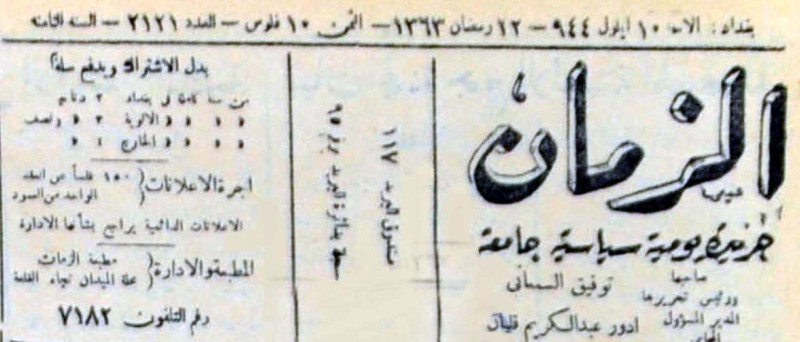 بغداد : الاحد ١٠ ايلول ٩٤٤ — ٢٢ رمضان ١٣٦٣ — الثمن ١٠ فلوس — العدد ٢١٢١ — السنة الثامنة
الزمان
جريدة يومية سياسية جامعة
صاحبها
ورئيس تحريرها
توفيق السمعاني
المدير المسؤول
المحامي
ادور عبدالكريم قليان
صندوق البريد ١١٧
سجلت بدائرة البريد برقم ٩٥
بدل الاشتراك ويدفع سلفاً
عن سنة كاملة في بغداد ٢ دنانير
» » » الالوية ٢ » ونصف
» » » الخارج ٤ »
اجرة الاعلانات ( ١٥٠ فلساً عن العقد الواحد من العمود
الاعلانات الدائمية يراجع بشأنها الادارة
المطبعة والادارة ( مطبعة الزمان محلة الميدان تجاه القلعة
رقم التلفون ٧١٨٢